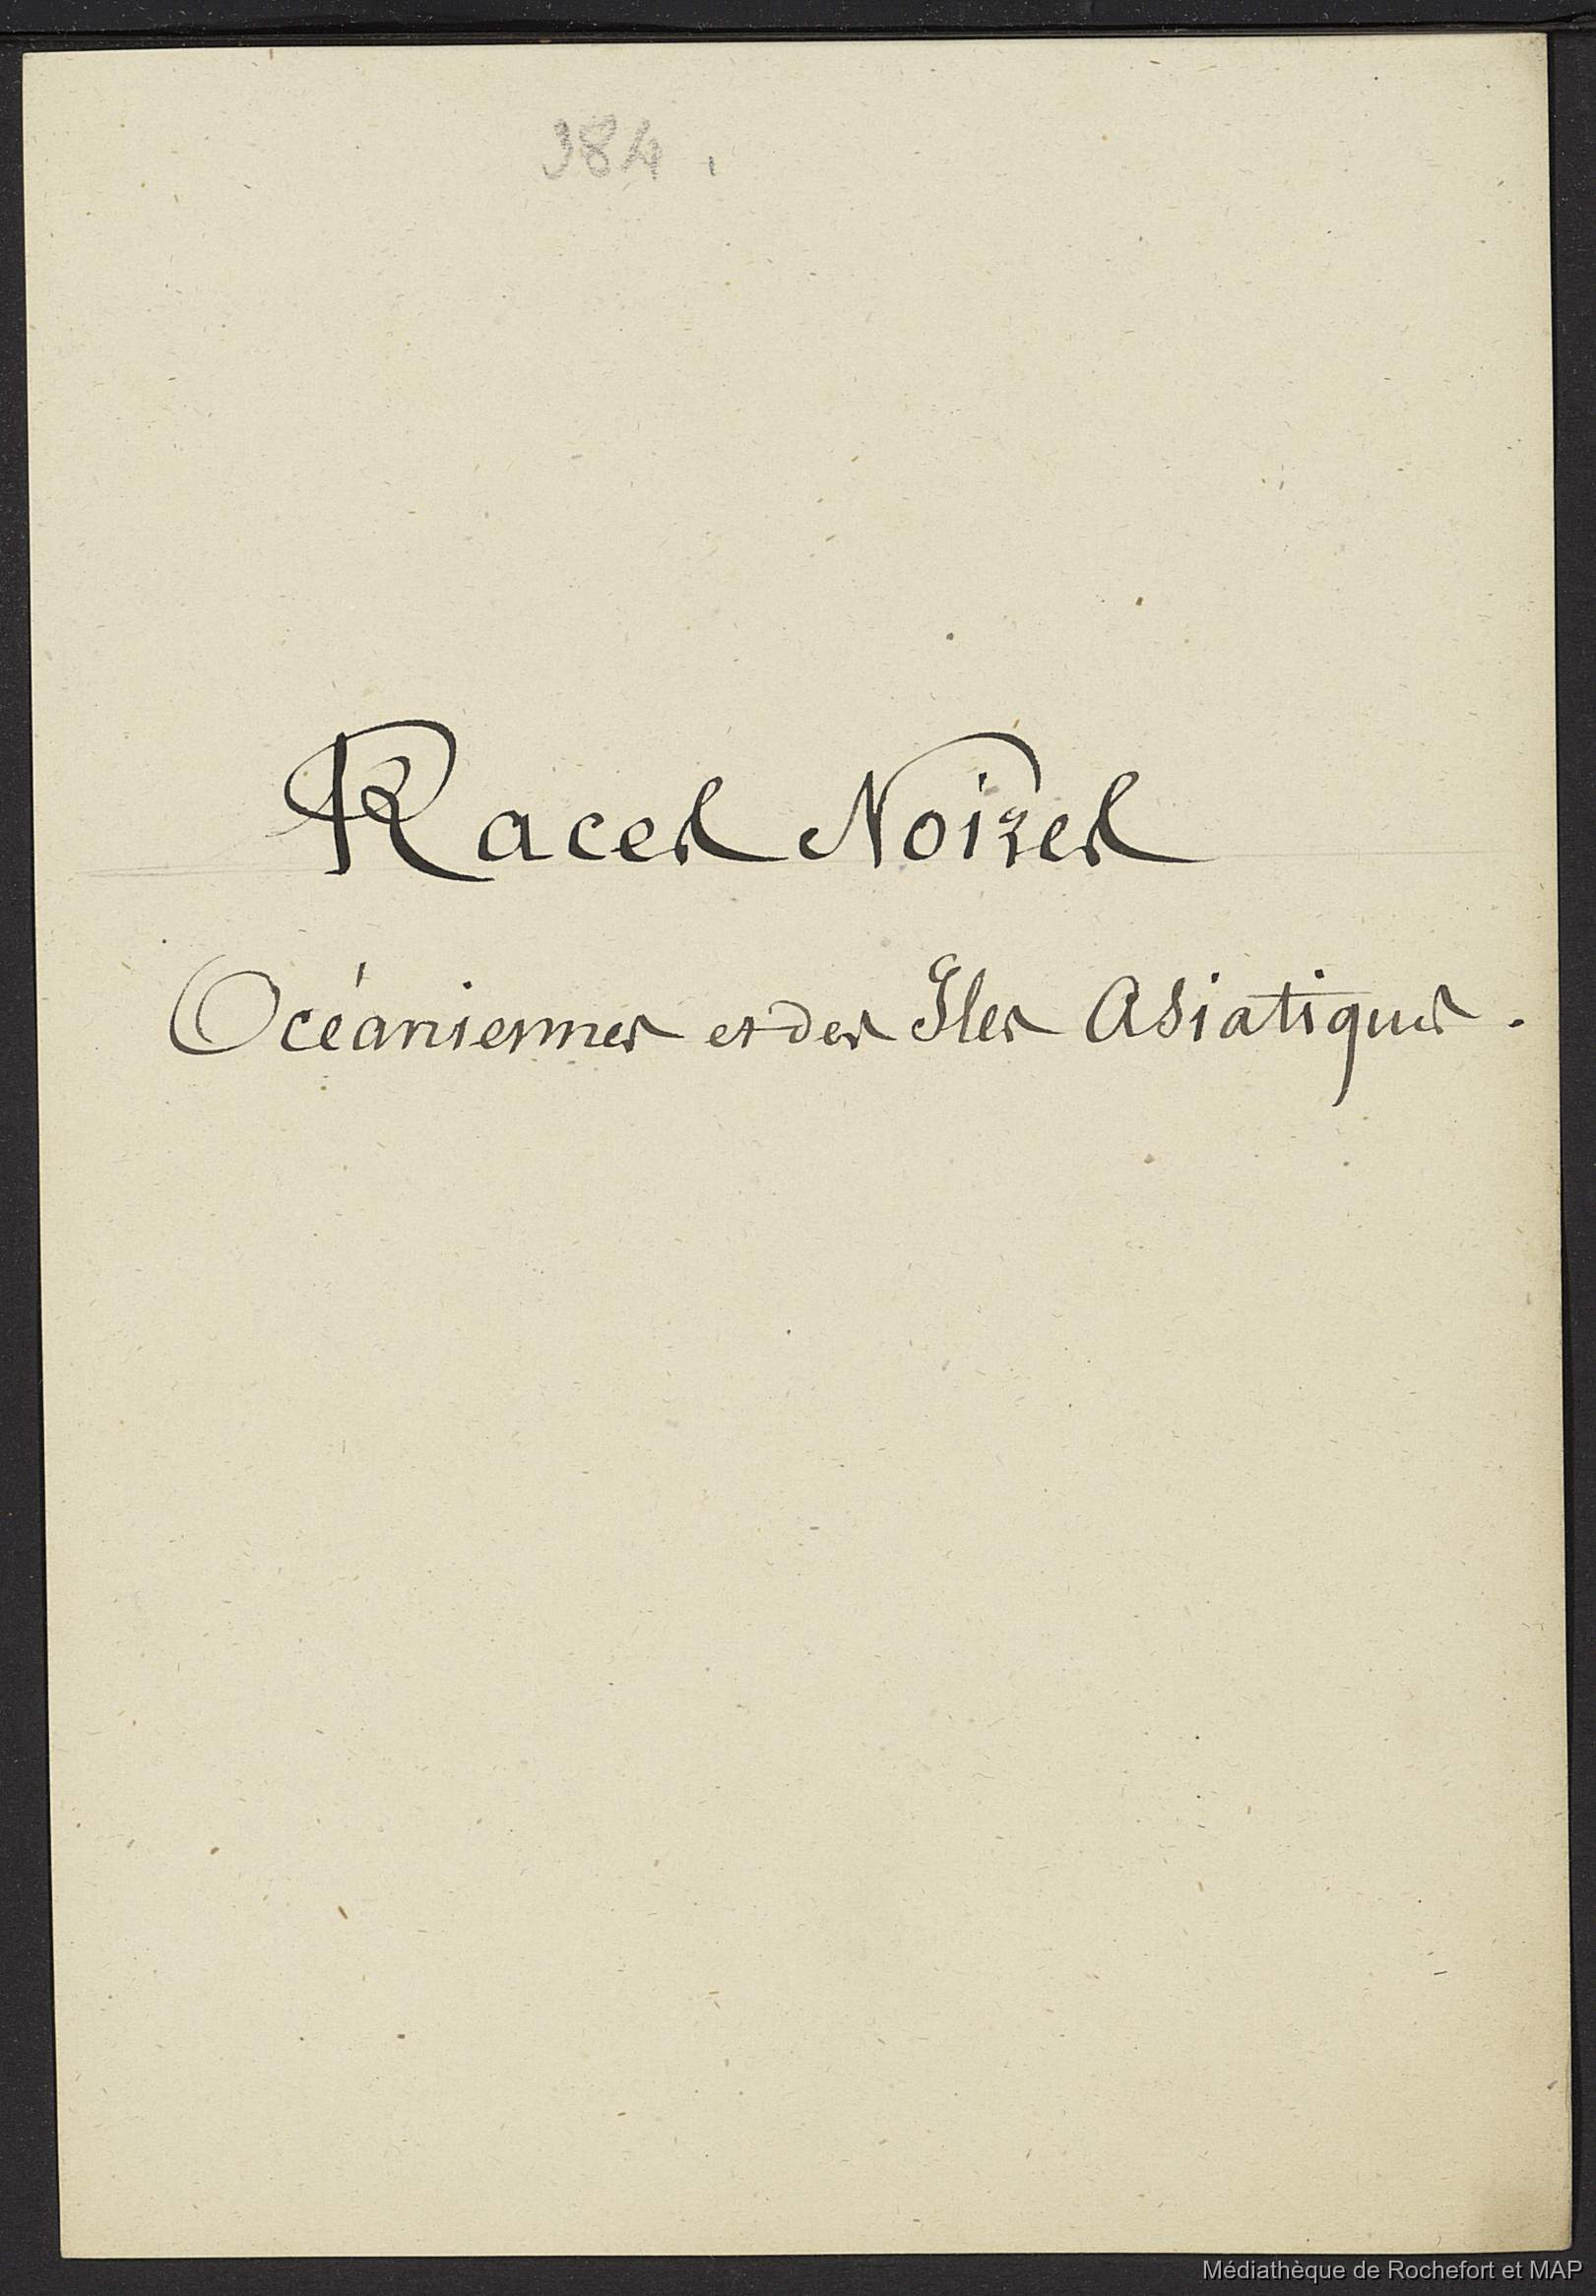 384.
Races Noires
Océaniennes et des Iles Asiatiques.
Médiathèque de Rochefort et MAP